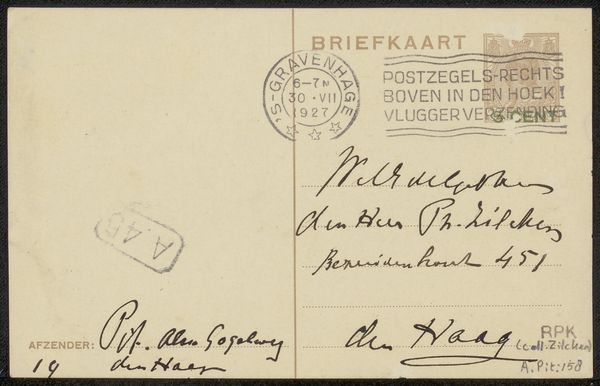 BRIEFKAART
'S-GRAVENHAGE
6-7N
30 · VII
1927
POSTZEGELS-RECHTS
BOVEN IN DEN HOEK!
VLUGGER VERZENDING
5 CENT
den Heer Ph. Zilcken
Bezuidenhout 451
den Haag
A.45
AFZENDER: Pit. Gogelweg
19 den Haag
RPK
(coll. Zilcken)
A.Pit:158